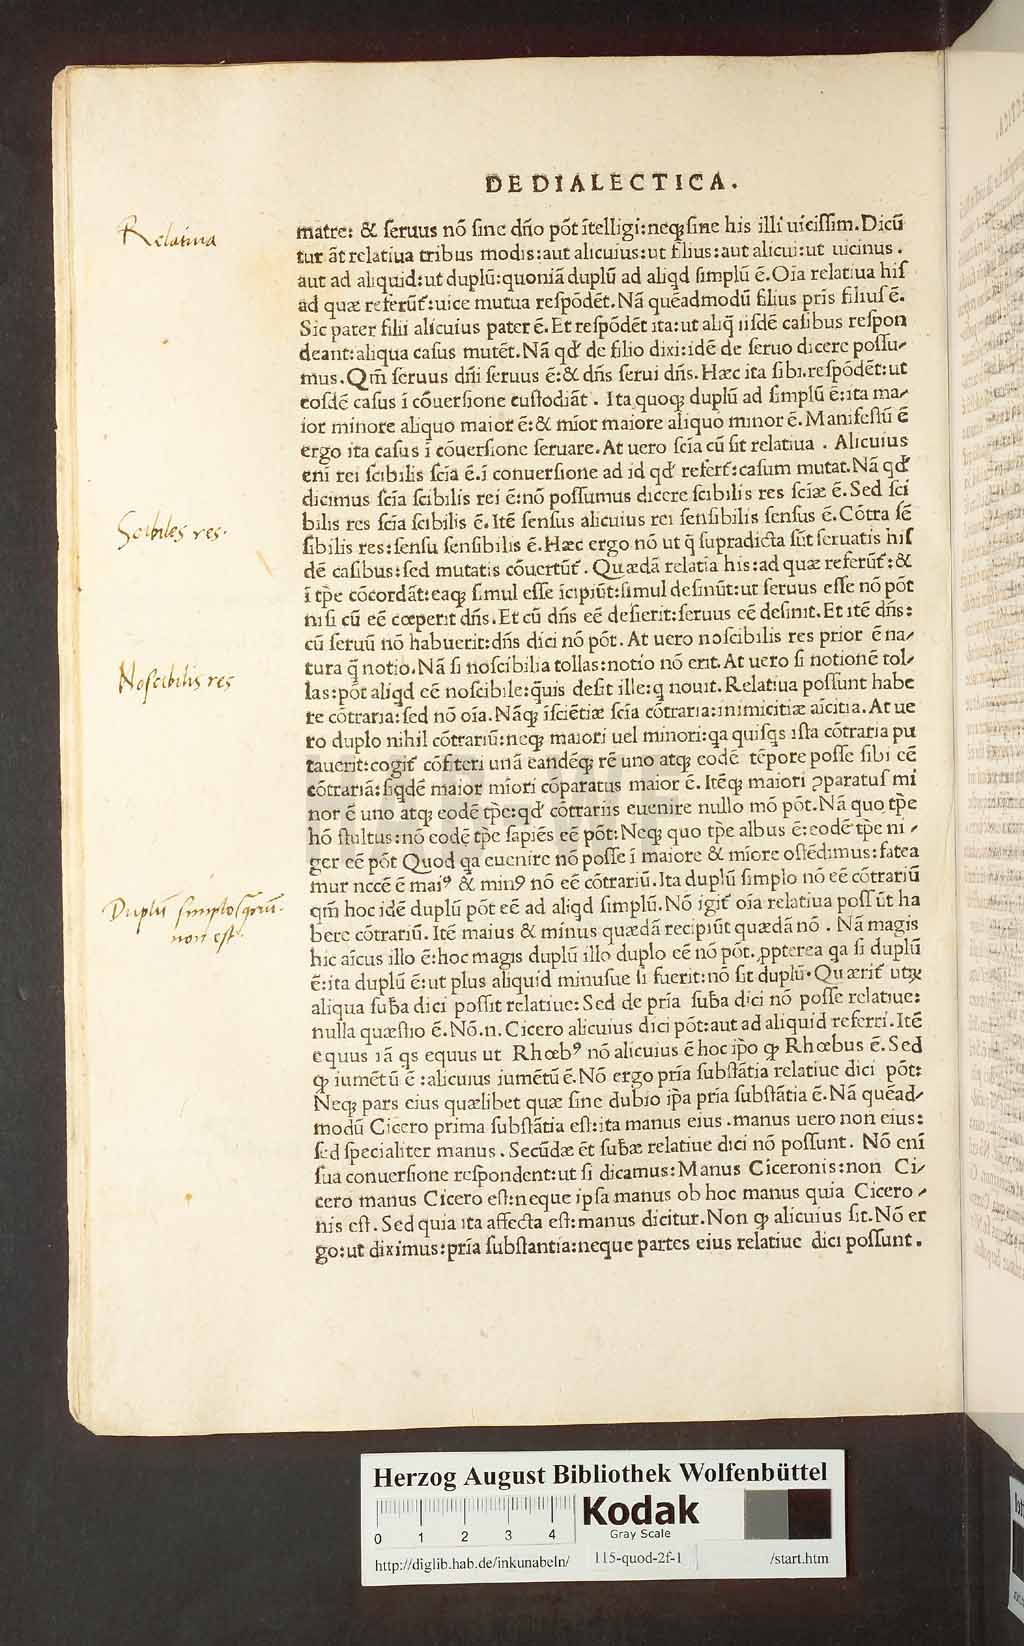 DE DIALECTICA.
Relatiua
matre: & seruus nō sine dn̄o pōt ītelligi: neq; sine his illi uicissim. Dicū
tur āt relatiua tribus modis: aut alicuius: ut filius: aut alicui: ut uicinus.
aut ad aliquid: ut duplū: quoniā duplū ad aliqd simplū ē. Oīa relatiua his
ad quæ referūt: uice mutua respōdēt. Nā quēadmodū filius pr̄is filius ē.
Sic pater filii alicuius pater ē. Et respōdēt ita: ut aliq̄ iisdē casibus respon
deant: aliqua casus mutēt. Nā qd' de filio dixi: idē de seruo dicere possu-
mus. Qm̄ seruus dn̄i seruus ē: & dn̄s serui dn̄s. Hæc ita sibi. respōdēt: ut
eosdē casus ī cōuersione custodiāt. Ita quoq; duplū ad simplū ē: ita ma-
ior minore aliquo maior ē: & mīor maiore aliquo minor ē. Manifestū ē
ergo ita casus ī cōuersione seruare. At uero scīa cū sit relatiua. Alicuius
enī rei scibilis scīa ē. ī conuersione ad id qd' refert: casum mutat. Nā qd'
dicimus scīa scibilis rei ē: nō possumus dicere scibilis res scīæ ē. Sed sci
Scibiles res.
bilis res scīa scibilis ē. Itē sensus alicuius rei sensibilis sensus ē. Cōtra sē
sibilis res: sensu sensibilis ē. Hæc ergo nō ut q̄ supradicta sūt seruatis his
dē casibus: sed mutatis cōuertūt. Quædā relatia his: ad quæ referūt: &
ī tp̄e cōcordāt: eaq; simul esse īcipiūt: simul desinūt: ut seruus esse nō pōt
nisi cū eē cœperit dn̄s. Et cū dn̄s eē desierit: seruus eē desinit. Et itē dn̄s:
cū seruū nō habuerit: dn̄s dici nō pōt. At uero noscibilis res prior ē na-
Noscibilis res
tura q̄ notio. Nā si noscibilia tollas: notio nō erit. At uero si notionē tol-
las: pōt aliqd eē noscibile: q̄uis desit ille: q nouit. Relatiua possunt habe
re cōtraria: sed nō oīa. Nāq; īsciētiæ scīa cōtraria: inimicitiæ aīcitia. At ue
ro duplo nihil cōtrariū: neq; maiori uel minori: qa quisqs ista cōtraria pu
tauerit: cogit cōfiteri unā eandēq; rē uno atq; eodē tēpore posse sibi eē
cōtrariā: siqdē maior mīori cōparatus maior ē. Itēq; maiori ꝯparatus mi
nor ē uno atq; eodē tp̄e: qd' cōtrariis euenire nullo mō pōt. Nā quo tp̄e
hō stultus: nō eodē tp̄e sapiēs eē pōt: Neq; quo tp̄e albus ē: eodē tp̄e ni-
ger eē pōt Quod qa euenire nō posse ī maiore & mīore ostēdimus: fatea
mur nccē ē maiꝰ & minꝰ nō eē cōtrariū. Ita duplū simplo nō eē cōtrariū
Duplū simplo 
non est.
qm̄ hoc idē duplū pōt eē ad aliqd simplū. Nō igit oīa relatiua possūt ha
bere cōtrariū. Itē maius & minus quædā recipiūt quædā nō. Nā magis
hic aīcus illo ē: hoc magis duplū illo duplo eē nō pōt. ꝓpterea qa si duplū
ē: ita duplū ē: ut plus aliquid minusue si fuerit: nō sit duplū. Quærit utꝝ
aliqua sub̄a dici possit relatiue: Sed de pr̄ia sub̄a dici nō posse relatiue:
nulla quæstio ē. Nō.n. Cicero alicuius dici pōt: aut ad aliquid referri. Itē
equus iā qs equus ut Rhœbꝰ nō alicuius ē hoc ip̄o ꝙ Rhœbus ē. Sed
ꝙ iumētū ē: alicuius iumētū ē. Nō ergo pr̄ia substātia relatiue dici pōt:
Neq; pars eius quælibet quæ sine dubio ip̄a pr̄ia substātia ē. Nā quēad-
modū Cicero prima substātia est: ita manus eius. manus uero non eius:
sed specialiter manus. Secūdæ ēt sub̄æ relatiue dici nō possunt. Nō enī
sua conuersione respondent: ut si dicamus: Manus Ciceronis: non Ci-
cero manus Cicero est: neque ipsa manus ob hoc manus quia Cicero-
nis est. Sed quia ita affecta est: manus dicitur. Non ꝙ alicuius sit. Nō er
go: ut diximus: pr̄ia substantia: neque partes eius relatiue dici possunt.
Herzog August Bibliothek Wolfenbüttel
Kodak
Gray Scale
0 1 2 3 4
http://diglib.hab.de/inkunabeln/ 115-quod-2f-1 /start.htm